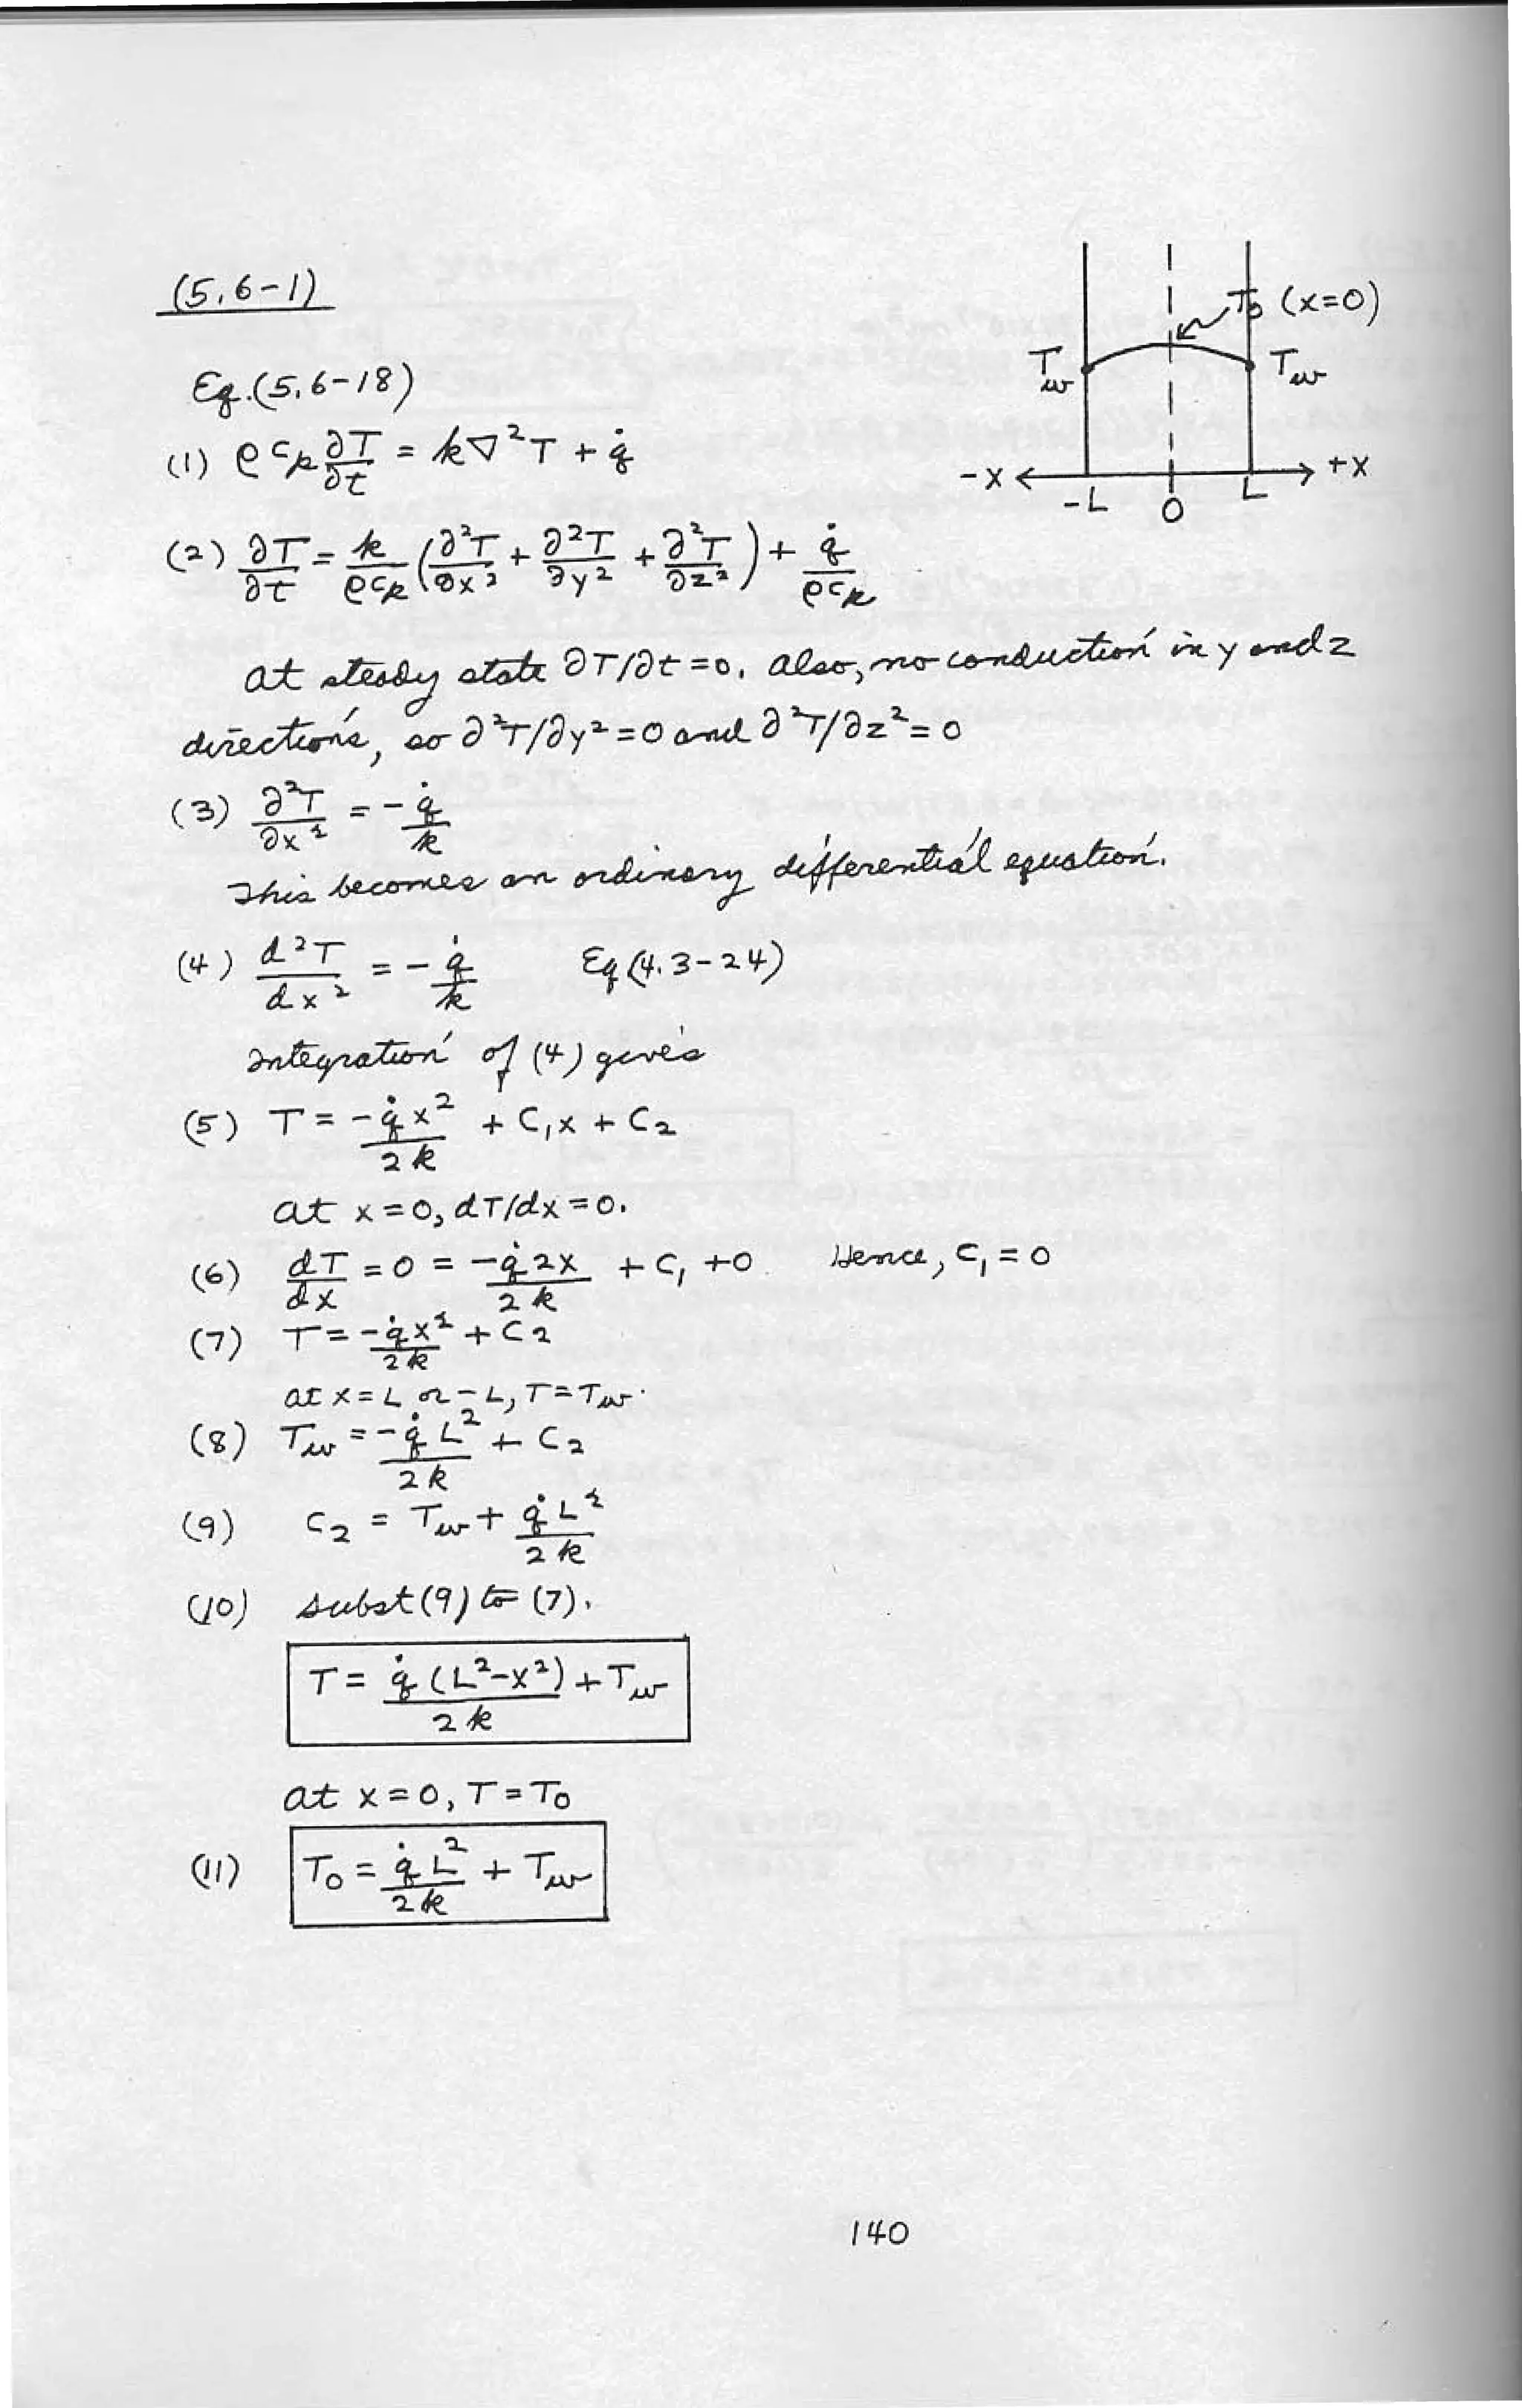 (5.6-1)
T₀ (x=0)
T_w T_w
-x +x
-L 0 L
Eq.(5.6-18)
(1) ρ c_p ∂T/∂t = k∇²T + q̇
(2) ∂T/∂t = k/ρc_p (∂²T/∂x² + ∂²T/∂y² + ∂²T/∂z²) + q̇/ρc_p
At steady state ∂T/∂t = 0. Also, no conduction in y and z
directions, so ∂²T/∂y² = 0 and ∂²T/∂z² = 0
(3) ∂²T/∂x² = - q̇/k
This becomes an ordinary differential equation.
(4) d²T/dx² = - q̇/k Eq(4.3-24)
Integration of (4) gives
(5) T = - q̇x²/2k + C₁x + C₂
at x = 0, dT/dx = 0.
(6) dT/dx = 0 = - q̇2x/2k + C₁ + 0 Hence, C₁ = 0
(7) T = - q̇x²/2k + C₂
at x = L or -L, T = T_w.
(8) T_w = - q̇L²/2k + C₂
(9) C₂ = T_w + q̇L²/2k
(10) subst (9) to (7).
T = q̇(L²-x²)/2k + T_w
at x = 0, T = T₀
(11) T₀ = q̇L²/2k + T_w
140